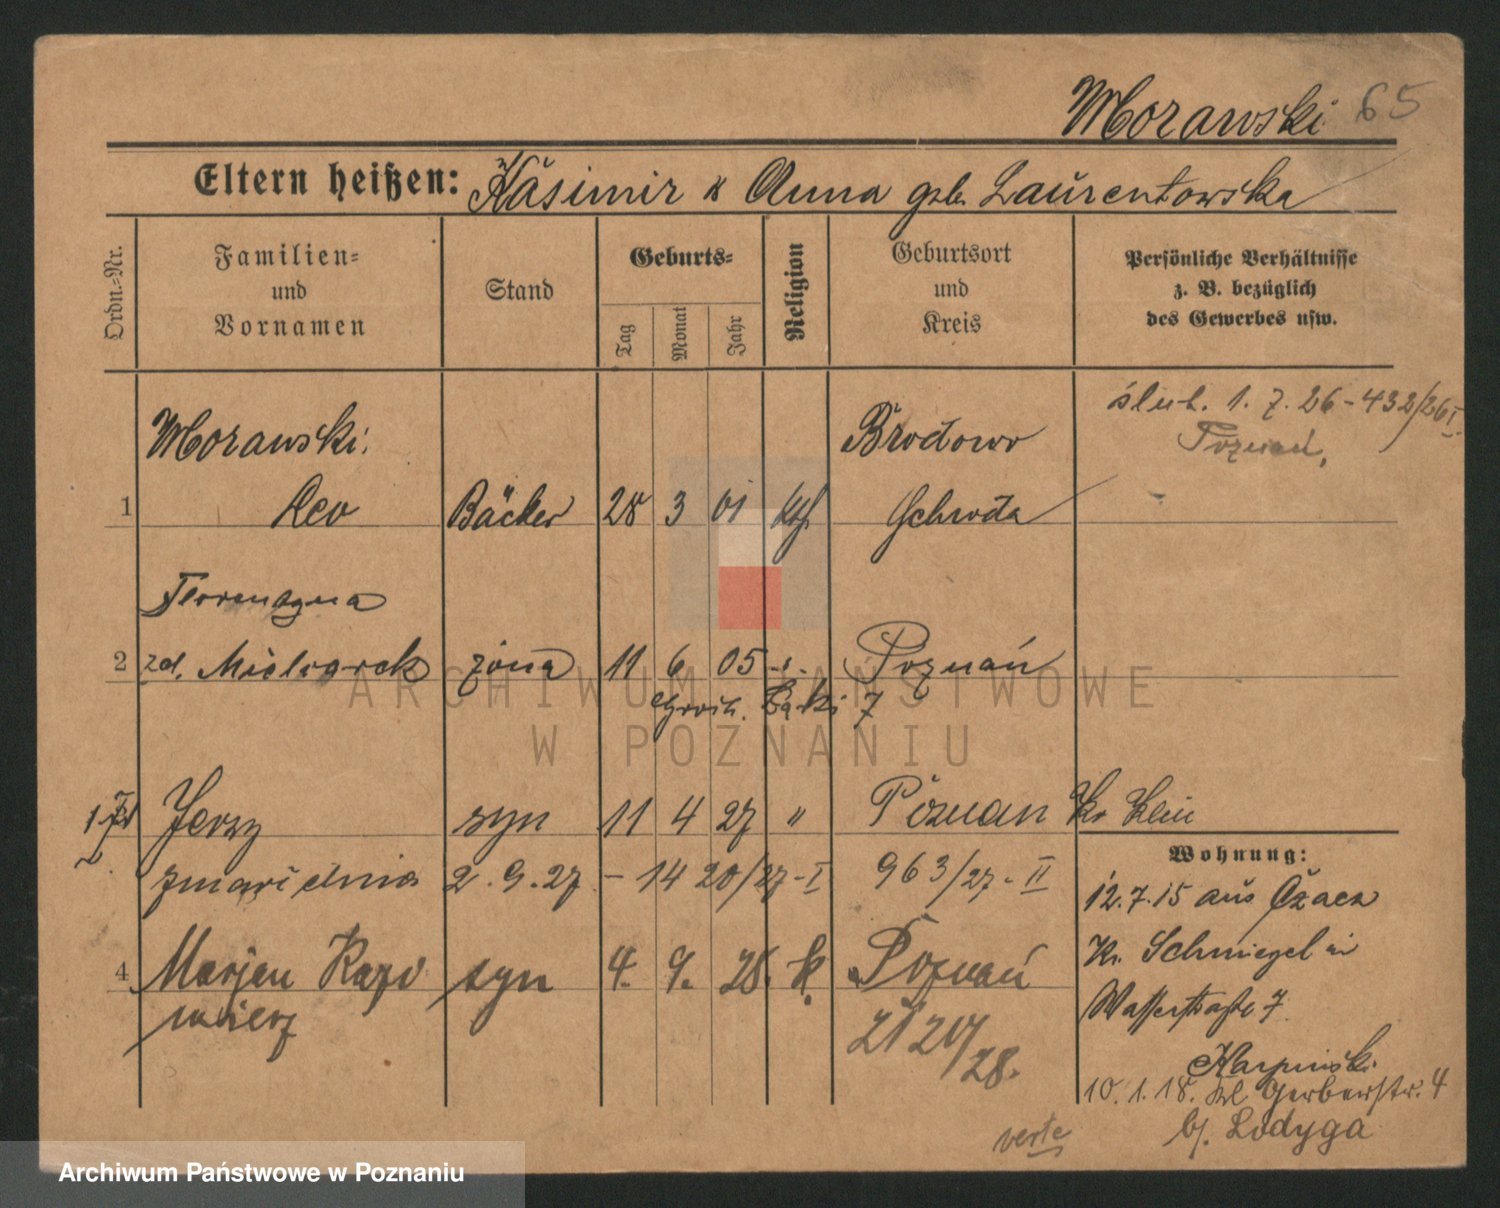 Morawski 65
Eltern heißen: Kasimir & Anna geb. Laurentowska
Ordn.-Nr.
Familien-
und
Vornamen
Stand
Geburts-
Tag
Monat
Jahr
Religion
Geburtsort
und
Kreis
Persönliche Verhältnisse
z. B. bezüglich
des Gewerbes usw.
ślub. 1. 7. 26 - 432/26 I
Poznań,
Morawski Brodowo
1 Leo Bäcker 28 3 01 kth Schroda
Florentyna
2 zd. Mielcarek żona 11 6 05 Poznań
Groch. Łąki 7
Jerzy syn 11 4 27 " Poznan
zmarł dnia 2.9.27 - 1420/27-I 963/27-II
4 Marjan Kazi syn 4. 9. 28. k. Poznań
mierz
2120/28.
Wohnung:
12.7.15 aus Czacz
Kr. Schmiegel in
Wasserstraße 7
Karpinski
10.1.18. Gerberstr. 4
b/. Lodyga
verte
ARCHIWUM PAŃSTWOWE
W POZNANIU
Archiwum Państwowe w Poznaniu